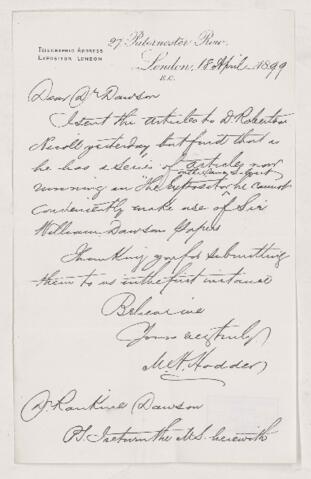 27, Paternoster Row,
TELEGRAPHIC ADDRESS
EXPOSITOR LONDON
London, 18 April 1899
E.C.
Dear Dr Dawson
I sent the articles to Dr Robertson
Nicoll yesterday but find that as
he has a series of articles now
on the same subject
running in "The Expositor" he cannot
conveniently make use of Sir
William Dawson papers
Thanking you for submitting
them to us in the first instance
Believe me
Yours very truly
M H Hodder
Dr Rankine Dawson
PS I return the MS. herewith